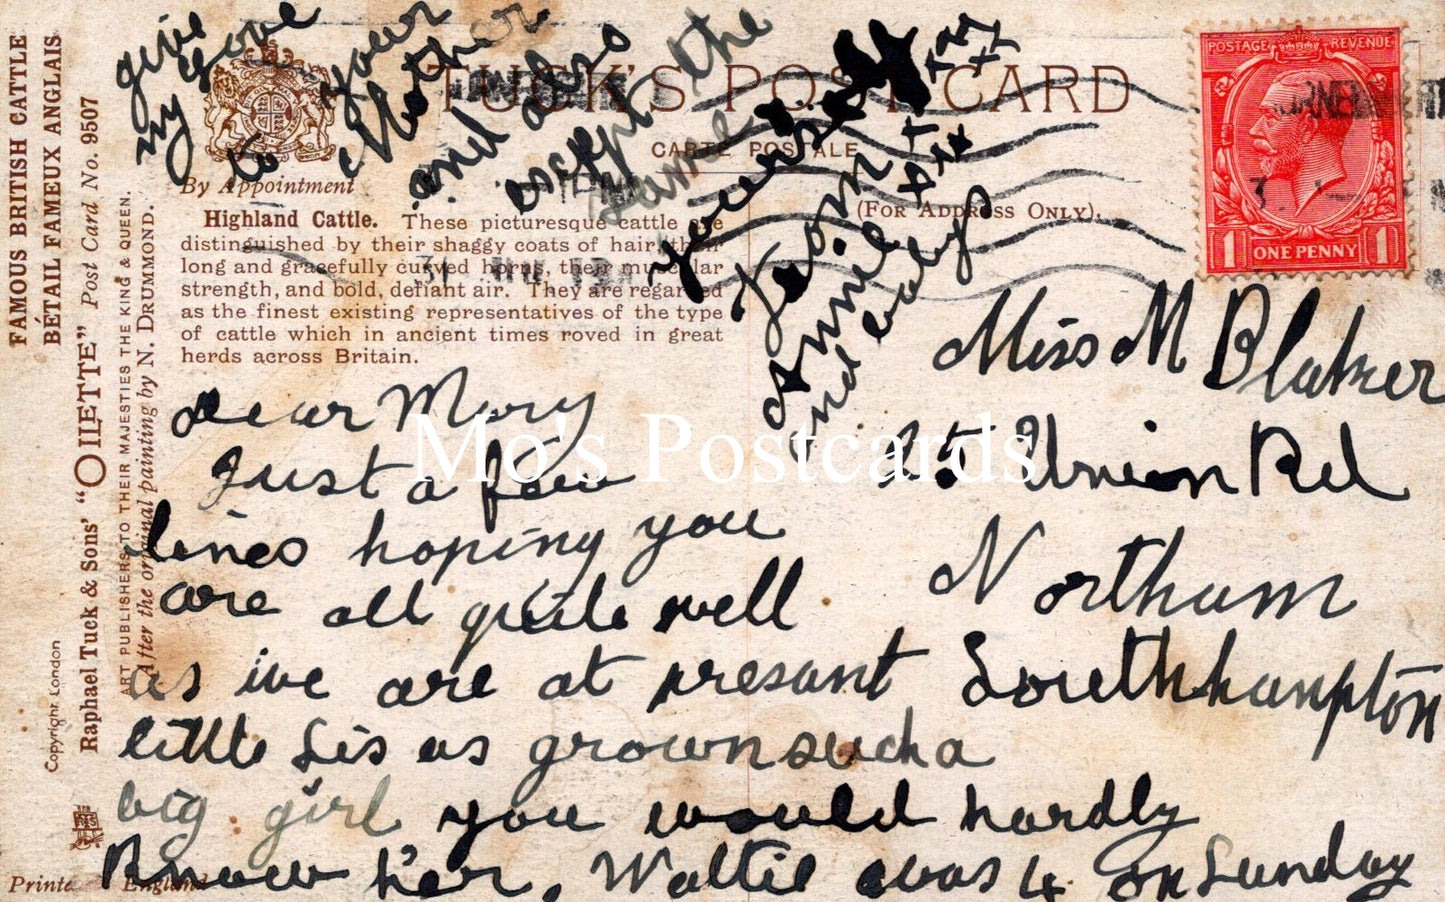 FAMOUS BRITISH CATTLE
BÉTAIL FAMEUX ANGLAIS
Raphael Tuck & Sons' "OILETTE" Post Card No. 9507
ART PUBLISHERS TO THEIR MAJESTIES THE KING & QUEEN.
After the original painting by N. DRUMMOND.
Copyright London
Printe England
TUCK'S POST CARD
CARTE POSTALE
(FOR ADDRESS ONLY).
By Appointment
Highland Cattle. These picturesque cattle are
distinguished by their shaggy coats of hair, their
long and gracefully curved horns, their muscular
strength, and bold, defiant air. They are regarded
as the finest existing representatives of the type
of cattle which in ancient times roved in great
herds across Britain.
POSTAGE REVENUE
1 ONE PENNY 1
Miss M Blaker
15 Union Rd
Northam
Southhampton
Dear Mary
Just a few
lines hoping you
are all quite well
as we are at presant
little Sis as grown such a
big girl you would hardly
Know her, Wattie was 4 on Sunday
give
my love
to your
Mother
and also
the
same
yourself
From
Annie
and babys
xxx
xx
Mo's Postcards